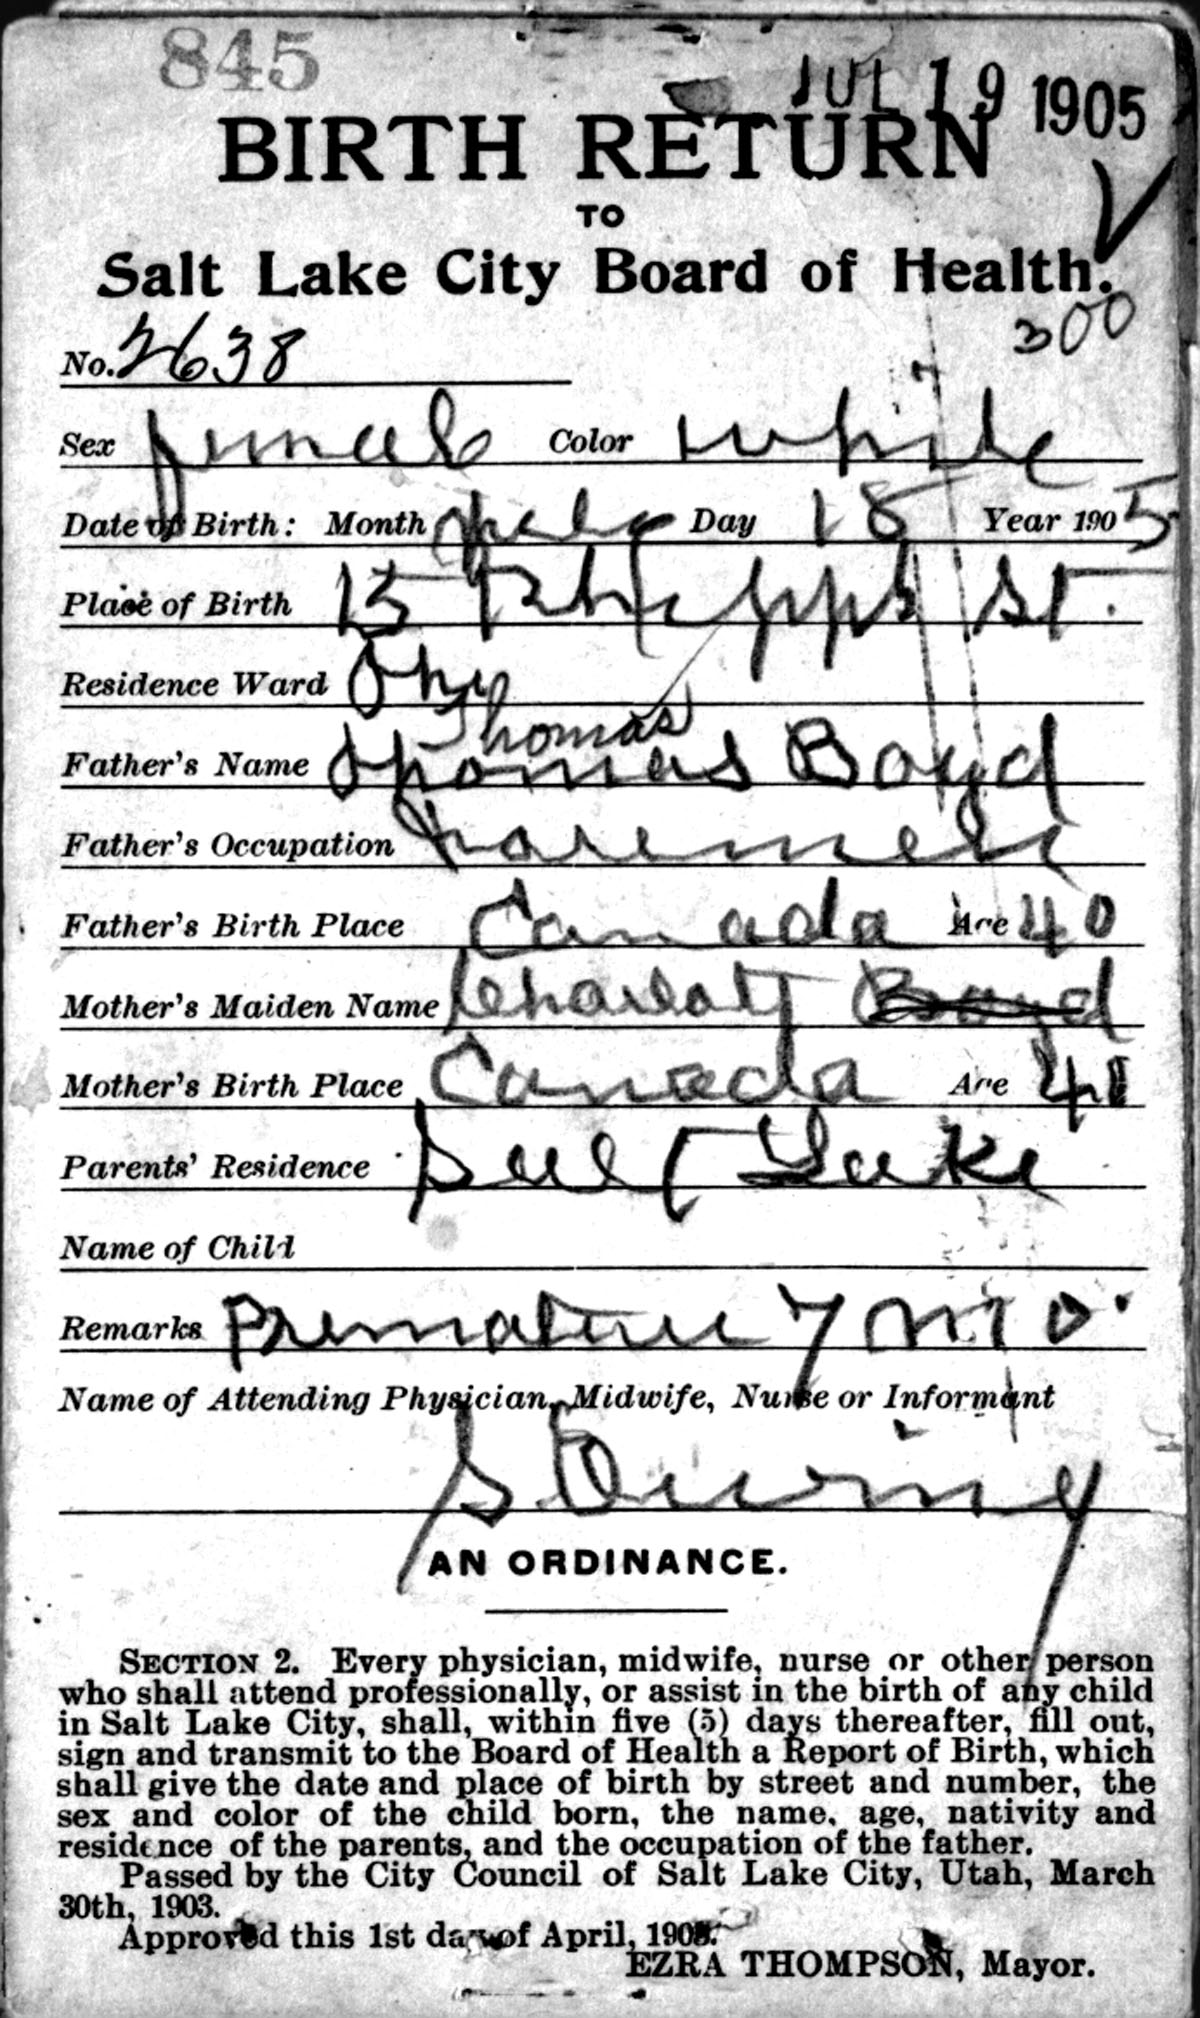 845
JUL 19 1905
BIRTH RETURN
TO
Salt Lake City Board of Health.
300
No. 2638
Sex female Color white
Date of Birth: Month Day 18 Year 1905
Place of Birth 15 St.
Residence Ward
Thomas
Father's Name Thomas Boyd
Father's Occupation
Father's Birth Place Canada Age 40
Mother's Maiden Name Charlott Boyd
Mother's Birth Place Canada Age 41
Parents' Residence Salt Lake
Name of Child
Remarks Premature 7 mo.
Name of Attending Physician, Midwife, Nurse or Informant
S Ewing
AN ORDINANCE.
SECTION 2. Every physician, midwife, nurse or other person
who shall attend professionally, or assist in the birth of any child
in Salt Lake City, shall, within five (5) days thereafter, fill out,
sign and transmit to the Board of Health a Report of Birth, which
shall give the date and place of birth by street and number, the
sex and color of the child born, the name, age, nativity and
residence of the parents, and the occupation of the father.
Passed by the City Council of Salt Lake City, Utah, March
30th, 1903.
Approved this 1st day of April, 1903.
EZRA THOMPSON, Mayor.